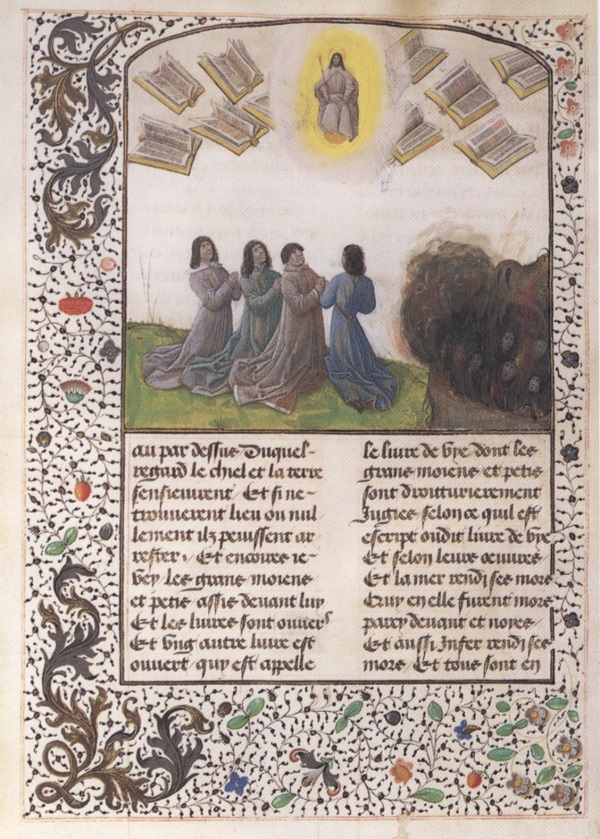 au par dessus Duquel-
regard le chiel et la terre
senfieuvrent Et si ne-
trouverent lieu ou nul
lement ilz peuissent ar
rester. Et encoires ie-
vey les grans moiens
et petis assis devant luy
Et les livres sont ouvers
Et vng autre livre est
ouvert quy est appelle
le livre de vye dont les
grans moiens et petis
sont droitturierement
Jugies selon ce quil est
escript oudit livre de vye
Et selon leurs œuvres
Et la mer rendi ses mors
Ceuy en elle furent mors
paravdevant et noyes
Et aussi Infer rendi ses
mors Et tous sont en